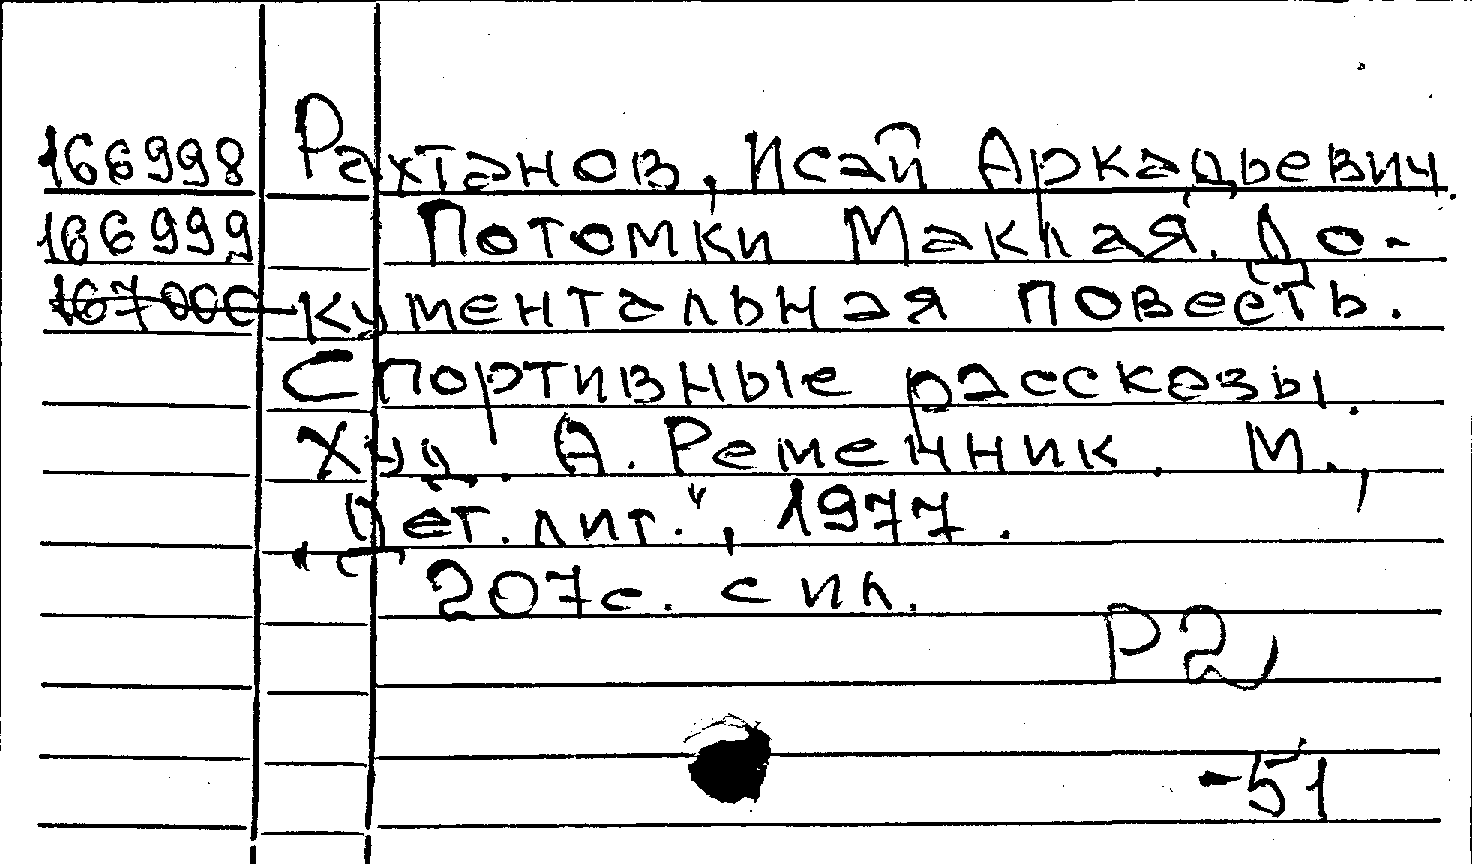 166998 Рахтанов, Исай Аркадьевич.
166999 Потомки Маклая. До-
167000 кументальная повесть.
Спортивные рассказы.
Худ. А. Ременник. М.,
"Дет. лит.", 1977.
207с. с ил.
Р2
-51